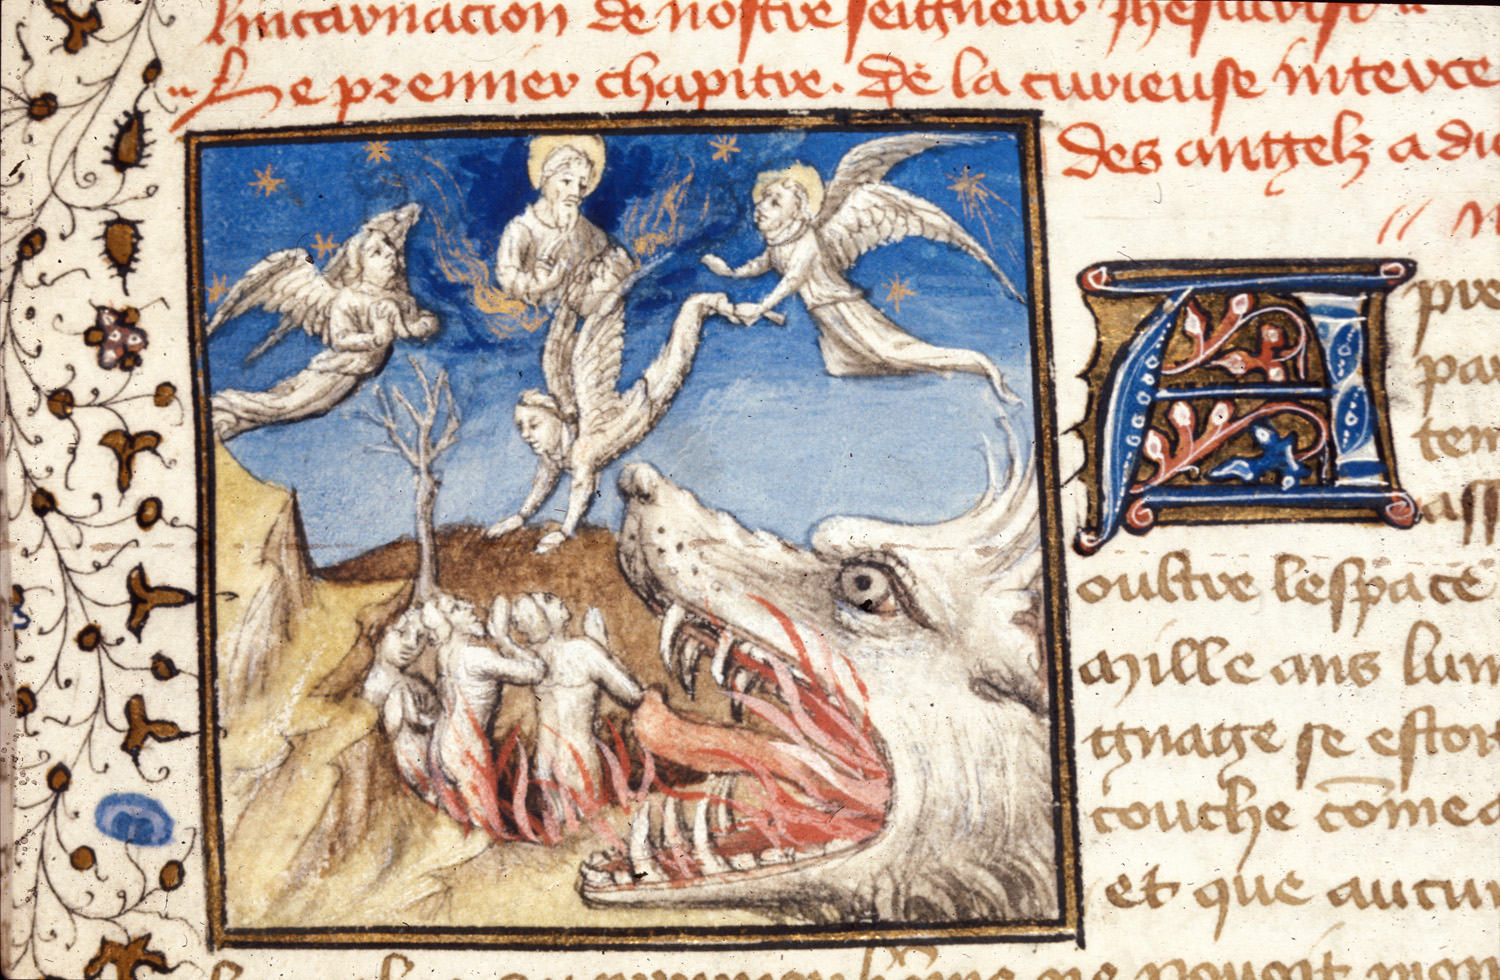 lincarnacion de nostre seigneur Jhesucrist
Le premier chapitre. De la curieuse interce
des angelz a di
A pre
par
tem
ass
oultre lespace
mille ans lum
gnage se estor
couche cōme
et que aucun